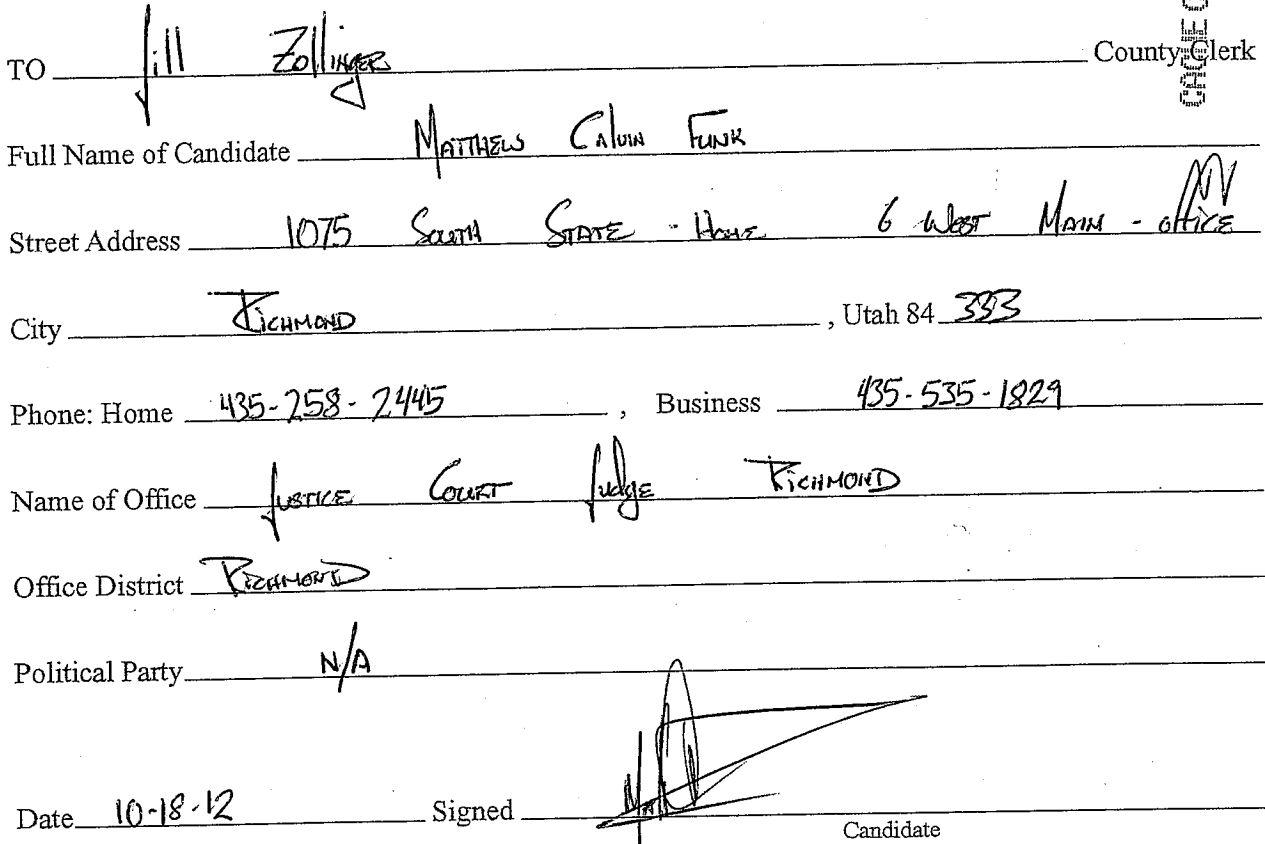 TO Jill Zollinger County Clerk
Full Name of Candidate Matthew Calvin Funk
Street Address 1075 South State - Home 6 West Main - office
City Richmond , Utah 84 333
Phone: Home 435-258-2445 , Business 435-535-1829
Name of Office Justice Court Judge Richmond
Office District Richmond
Political Party N/A
Date 10-18-12 Signed
Candidate